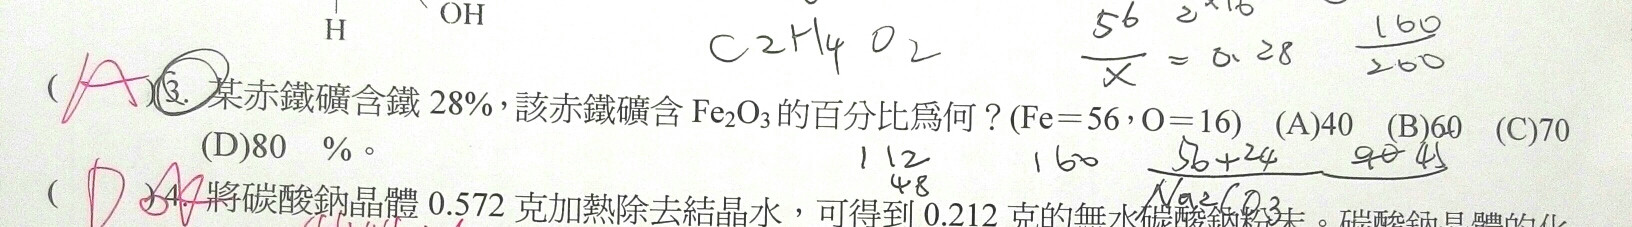 OH
H
C2H4O2
56/x = 0.28
160/200
(A)3. 某赤鐵礦含鐵 28%，該赤鐵礦含 Fe₂O₃ 的百分比爲何？(Fe＝56，O＝16) (A)40 (B)60 (C)70
(D)80 %。
112 160 56+24 45
48
Na2CO3
( D )4. 將碳酸鈉晶體 0.572 克加熱除去結晶水，可得到 0.212 克的無水碳酸鈉粉末。碳酸鈉晶體的化